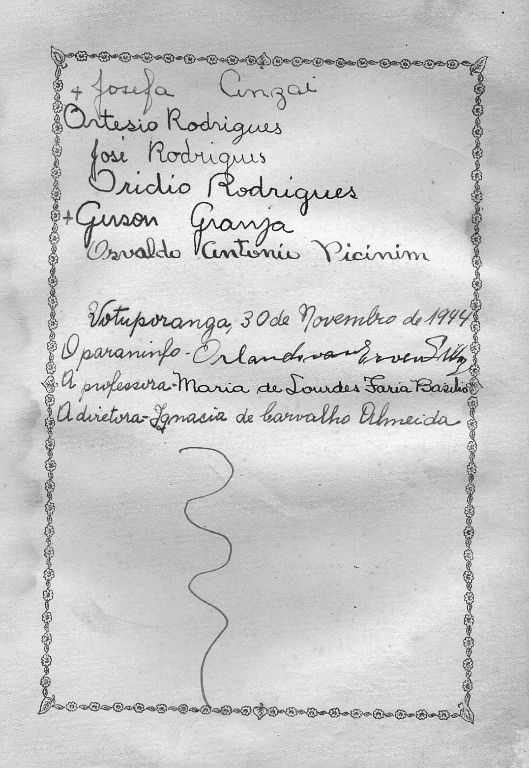 + Josefa Anzai
Ortesio Rodrigues
José Rodrigues
Oridio Rodrigues
+ Gerson Granja
Osvaldo Antonio Picinim
Votuporanga, 30 de Novembro de 1944
O paraninfo - Orlando
A professora - Maria de Lourdes Faria Basilio
A diretora - Ignacia de Carvalho Almeida